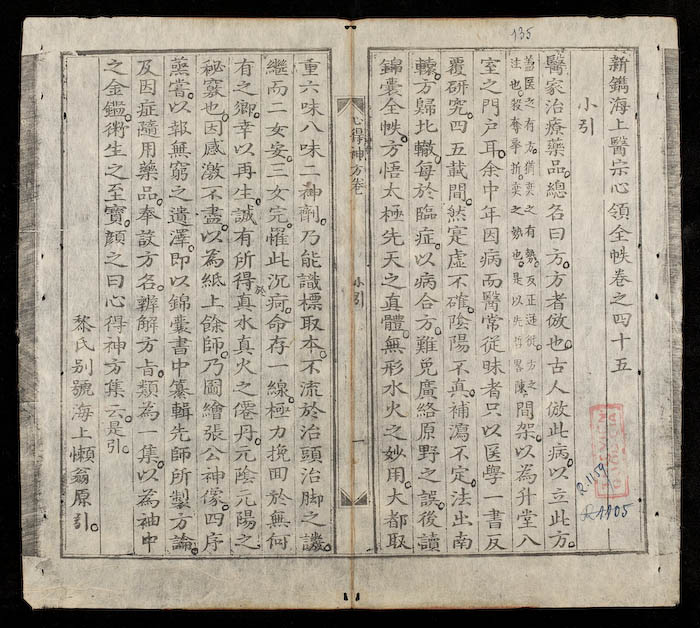 135
新鐫海上醫宗心領全帙卷之四十五
小引
醫家治療藥品總名曰方方者倣也古人倣此病以立此方
蓋医之有方猶奕之有勢反正逆從方之
法也殺奪爭折奕之勢也是以先哲畧陳
間架以為升堂入
室之門戶耳余中年因病而醫常從昧者只以医學一書反
覆研究四五載間然寔虛不確陰陽不真補瀉不定法出南
轅方歸北轍每於臨症以病合方難免廣絡原野之誤後讀
錦囊全帙方悟太極先天之真體無形水火之妙用大都取
心得神方卷
小引
一
重六味八味二神劑乃能識標取本不流於治頭治脚之譏
繼而二女安三女完罹此沉疴命存一線極力挽回於無何
有之鄉幸以再生誠有所得於真水真火之僊丹元陰元陽之
秘竅也因感激不盡以為紙上餘師乃圖繪張公神像四序
蒸嘗以報無窮之遺澤即以錦囊書中纂輯先師所製方論
及因症隨用藥品奉設方名辨解方旨類為一集以為袖中
之金鑑術生之至寶顏之曰心得神方集云是引
黎氏别號海上懶翁原引
R.1159
R1105